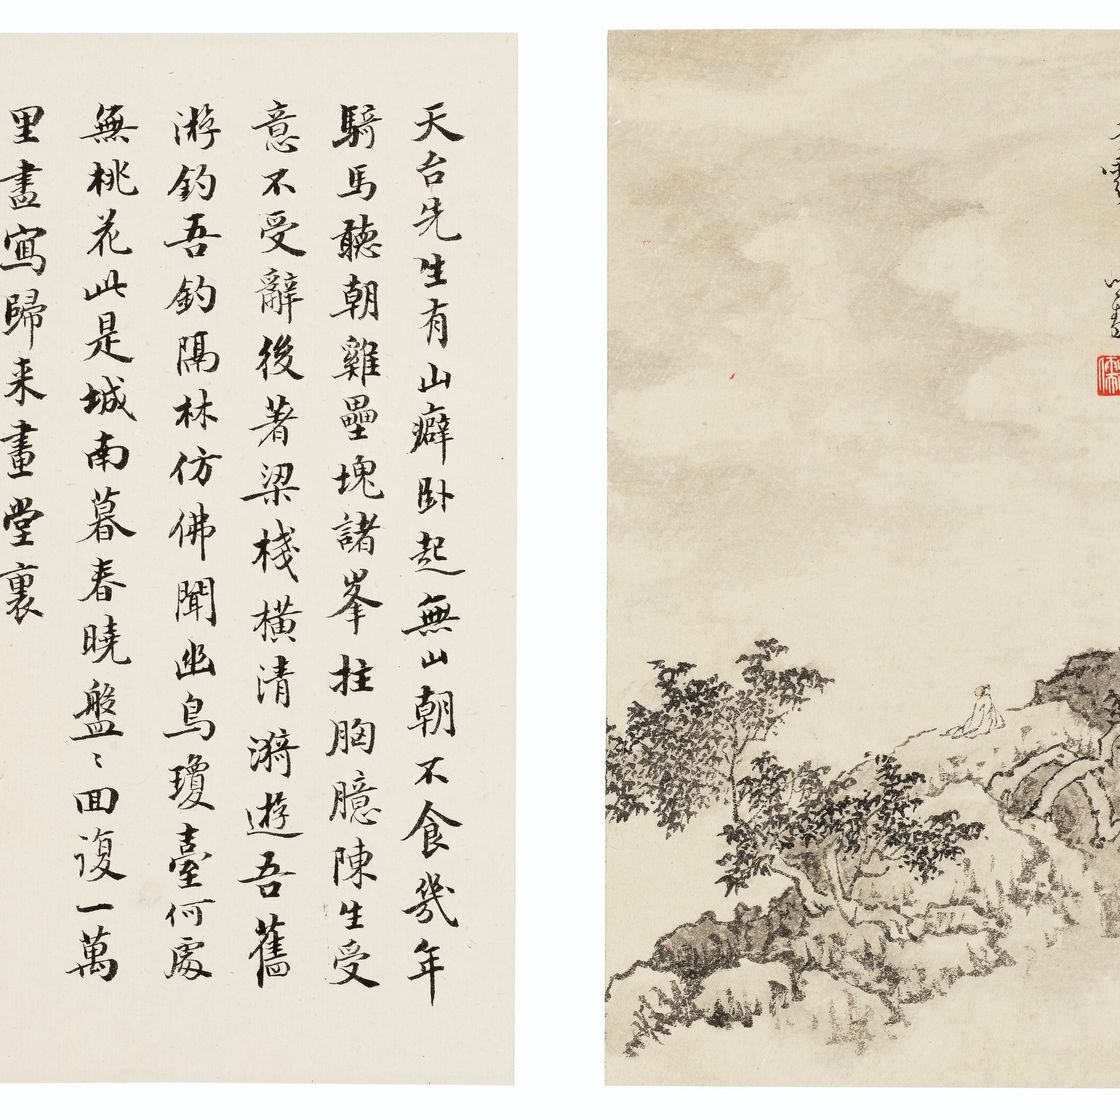 天台先生有山癖卧起無山朝不食幾年
騎馬聽朝雞壘塊諸峯拄胸臆陳生受
意不受辭後著梁棧橫清漪遊吾舊
游釣吾釣隔林仿佛聞幽鳥瓊臺何處
無桃花此是城南暮春曉盤〻回復一萬
里盡寫歸来畫堂裏